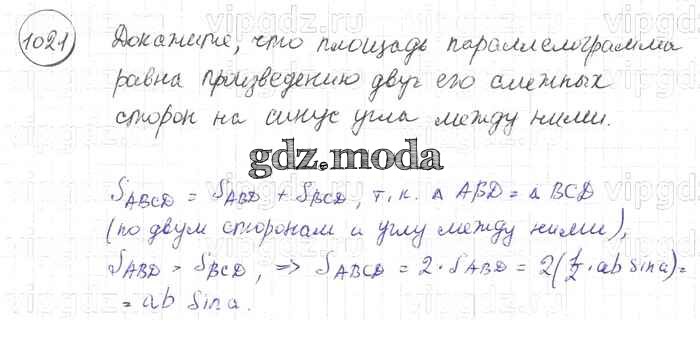 vipgdz.ru vipgdz.ru vipgdz.ru
1021 Докажите, что площадь параллелограмма
равна произведению двух его смежных
сторон на синус угла между ними.
gdz.moda
S_ABCD = S_ABD + S_BCD, т.к. △ ABD = △ BCD
(по двум сторонам и углу между ними),
S_ABD = S_BCD, => S_ABCD = 2 · S_ABD = 2(1/2 · ab sina) =
= ab sina.